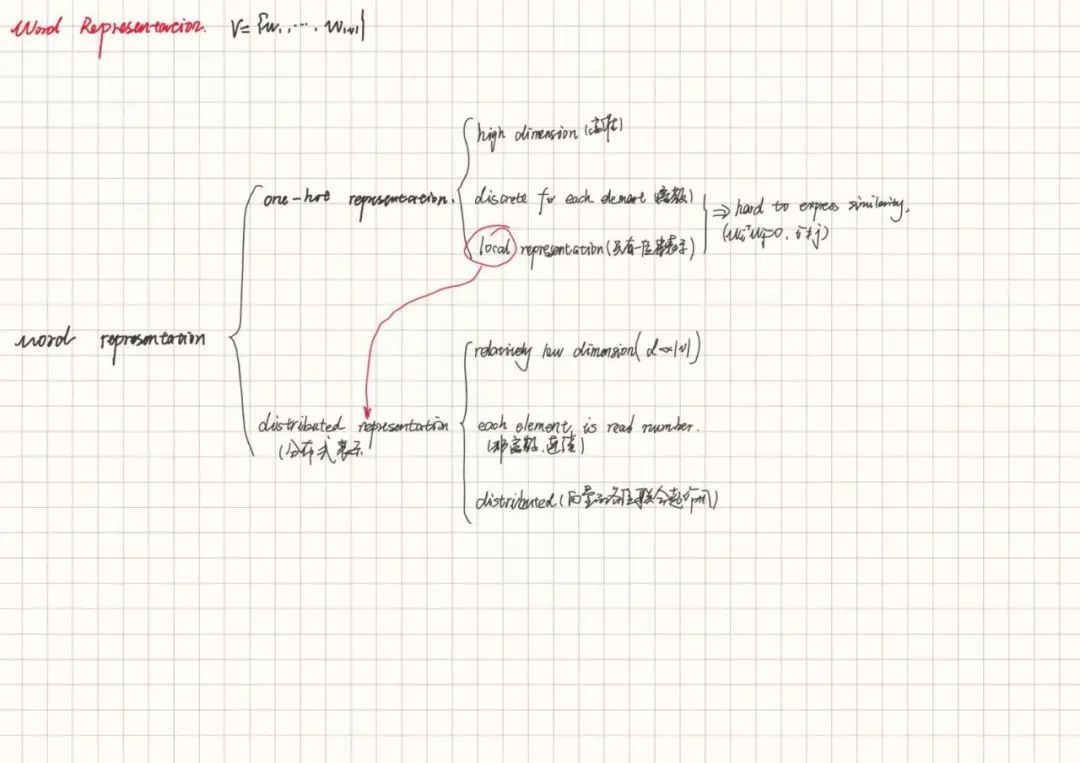 Word Representation. V={w₁, ..., w|v|}
high dimension (高维)
one-hot representation.
discrete for each element (离散)
⇒ hard to express similarity.
(wᵢᵀwⱼ=0, i≠j)
local representation (只有一位表示)
word representation
relatively low dimension (d<<|v|)
distributed representation
(分布式表示
each element is real number.
(非离散、连续)
distributed (向量的各位联合起作用)